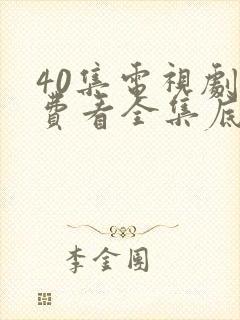 40集電視劇
費看全集底
李金團